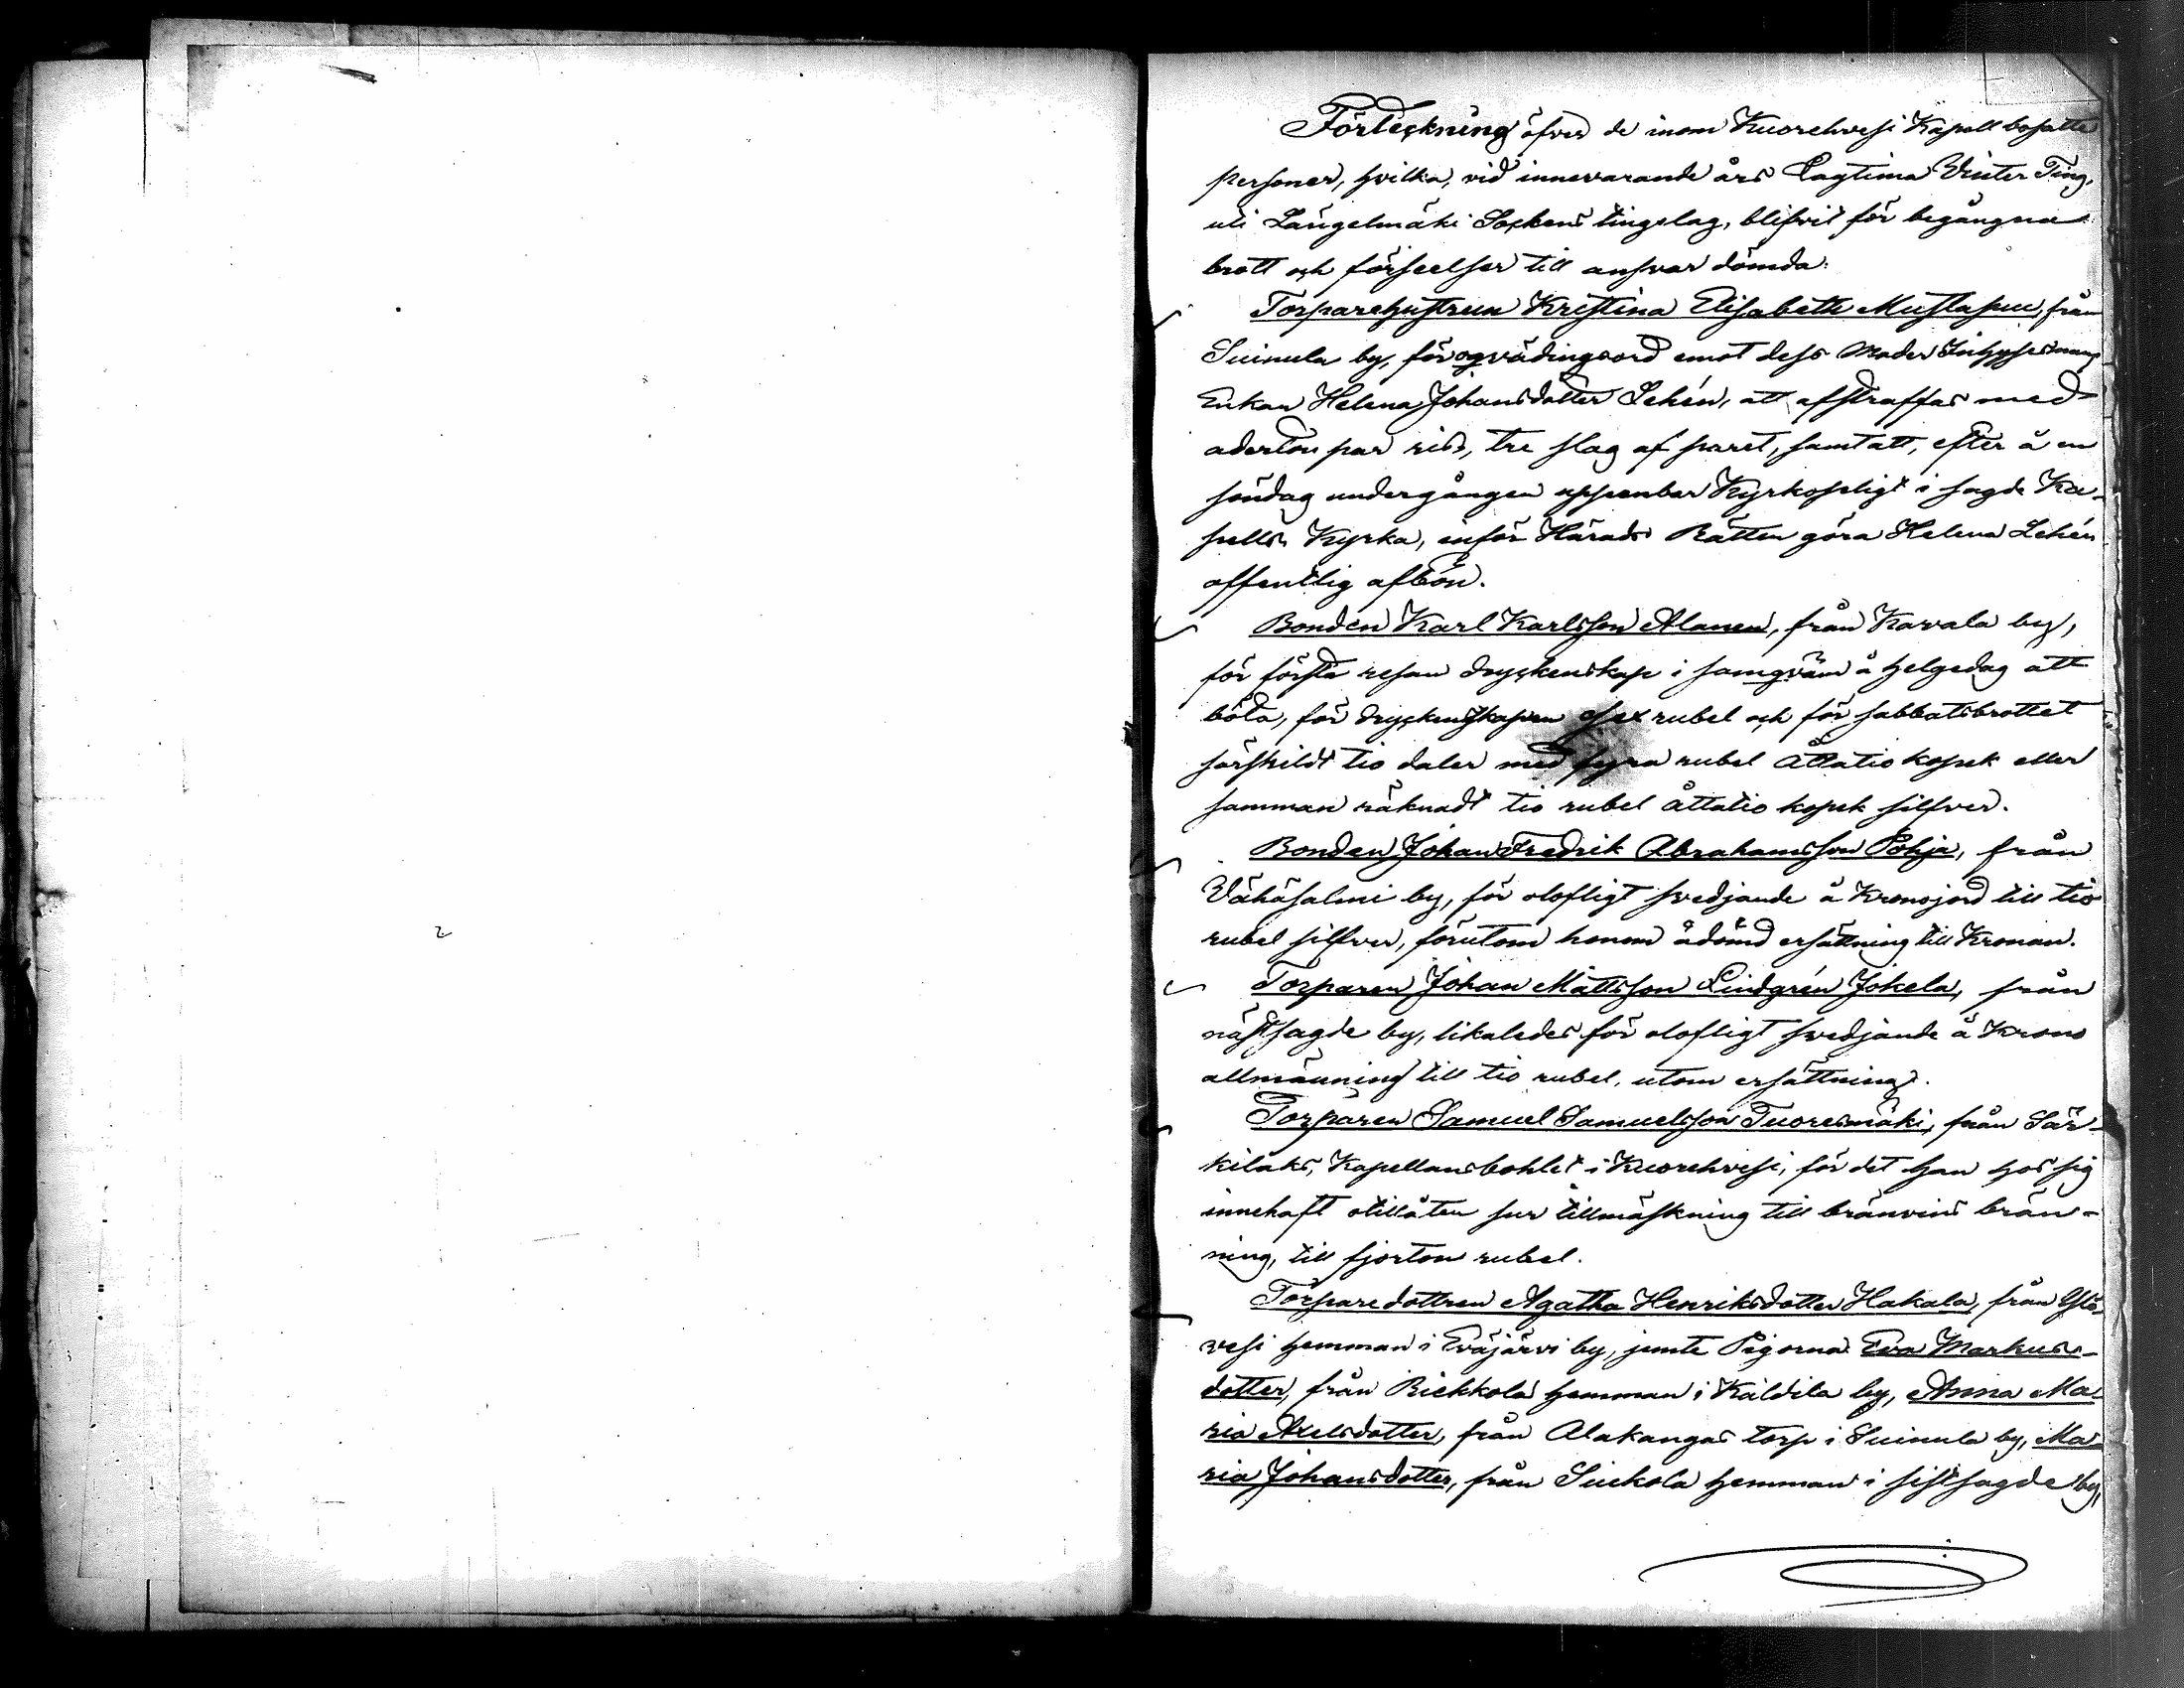 Förteckning öfver de inom Kuorehvesi Kapell bosatte
personer, hvilka, vid innevarande års Lagtima Vinter Ting,
uti Längelmäki Sockens tingslag, blifvit för begångna
brott och förseelser till ansvar dömda:
Torparehustrun Kristina Elisabeth Mustapuu, från
Suinula by, för oqvädingsord emot dess Moder Inhysesmans
Enkan Helena Johansdotter Lehén, att afstraffas med
aderton par ris, tre slag af paret, samt att, efter å en
söndag undergången uppenbar Kyrkopligt i sagde Ka-
pells Kyrka, inför Härads Rätten göra Helena Lehén
offentlig afbön.
Bonden Karl Karlsson Alanen, från Kavala by,
för första resan dryckenskap i samqväm å helgedag att
böta, för dryckenskapen sex rubel och för sabbatsbrottet
särskildt tio daler med fyra rubel åttatio kopek eller
samman räknadt tio rubel åttatio kopek silfver.
Bonden Johan Fredrik Abrahamsson Pohja, från
Vähäsalmi by, för olofligt svedjande å Kronojord till tio
rubel silfver, förutom honom ådömd ersättning till Kronan.
Torparen Johan Mattsson Lindgrén Jokela, från
nästsagde by, likaledes för olofligt svedjande å Krono
allmänning till tio rubel, utom ersättning.
Torparen Samuel Samuelsson Tuoresmäki, från Sär-
kilaks, Kapellansbohlet i Kuorehvesi, för det han hos sig
innehaft otillåten sur tillmäskning till bränvins brän-
ning, till fjorton rubel.
Torparedottren Agatha Henriksdotter Hakala, från
vesi hemman i Eväjärvi by, jemte Pigorna Eva Markus-
dotter, från Riekkola hemman i Käldila by, Anna Ma-
ria Axelsdotter, från Alakangas torp i Suinula by, Ma-
ria Johansdotter, från Siukola hemman i sistsagde by,